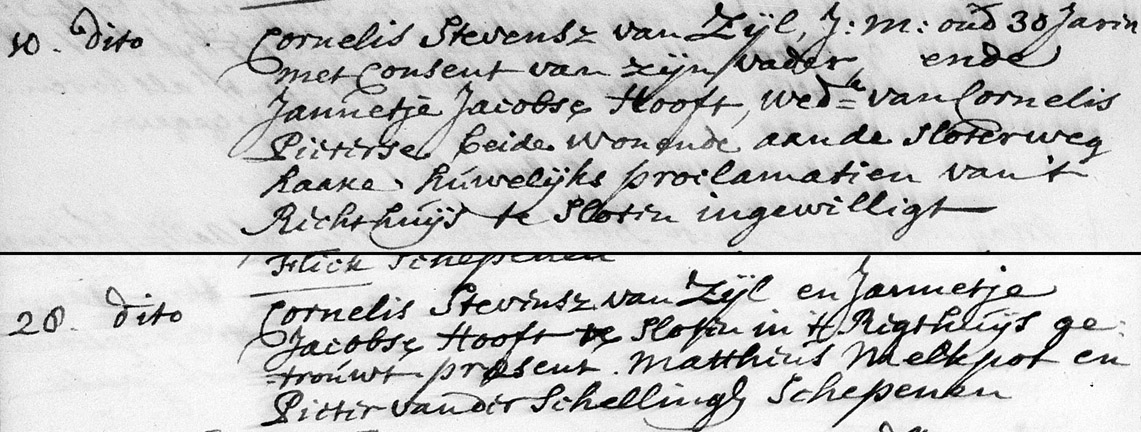 10. dito Cornelis Stevensz van Zÿl, J: m: oud 30 Jaren
met Consent van zÿn vader, ende
Jannetje Jacobsz Hooft, wed=e van Cornelis
Pieterse beide wonende aan de Sloterweg
haare huwelÿks proclamatien van 't
Richthuÿs te Sloten ingewilligt
Flick Schepenen
28. dito Cornelis Stevensz van Zÿl en Jannetje
Jacobsz Hooft te Sloten in 't Rigthuÿs ge:
trouwt præsent. Matthius Melkpot en
Pieter van der Schellingh Schepenen